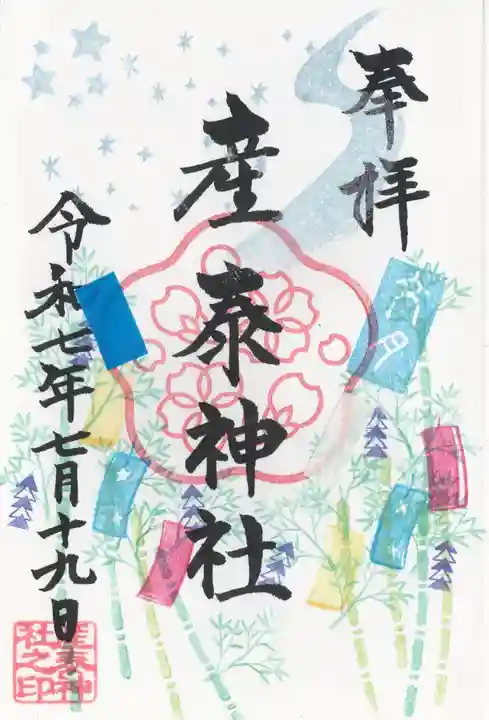 奉拝
産泰神社
令和七年七月十九日
産泰神
社之印